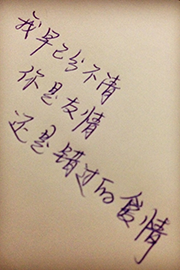 我早已分不清
你是友情
还是错过的爱情